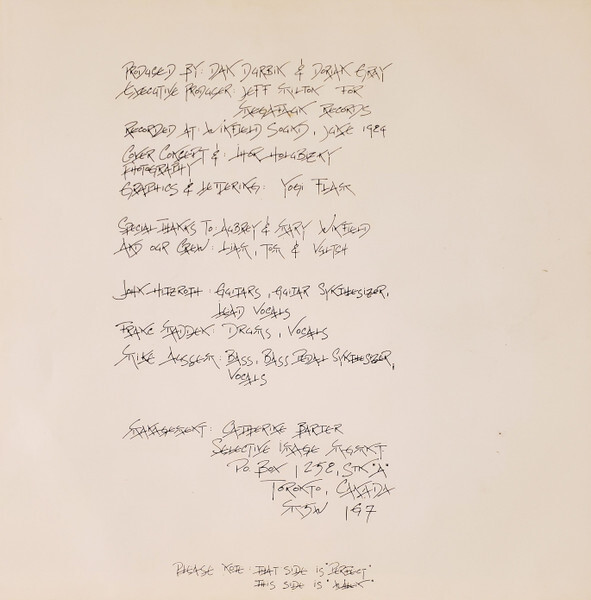 PRODUCED BY: DAN DURBIN & DORIAN GRAY
EXECUTIVE PRODUCER JEFF FOR
RECORDS
RECORDED AT: WINFIELD SOUND, JUNE 1984
COVER CONCEPT & : IHOR HOLUBIZKY
PHOTOGRAPHY
GRAPHICS & LETTERING: YOGI
SPECIAL THANKS TO AUBREY & MARY WINFIELD
AND OUR CREW: LIAM, TOM &
JOHN HITZROTH: GUITARS, GUITAR SYNTHESIZER,
LEAD VOCALS
FRANC MADDEN: DRUMS, VOCALS
MIKE AUSSEM: BASS, BASS PEDAL SYNTHESIZER,
VOCALS
MANAGEMENT: CATHERINE BARTER
SELECTIVE IMAGE MGMNT
P.O. BOX 1258, STN "A"
TORONTO, CANADA
M5W 1G7
PLEASE NOTE: THAT SIDE IS "PERFECT"
THIS SIDE IS